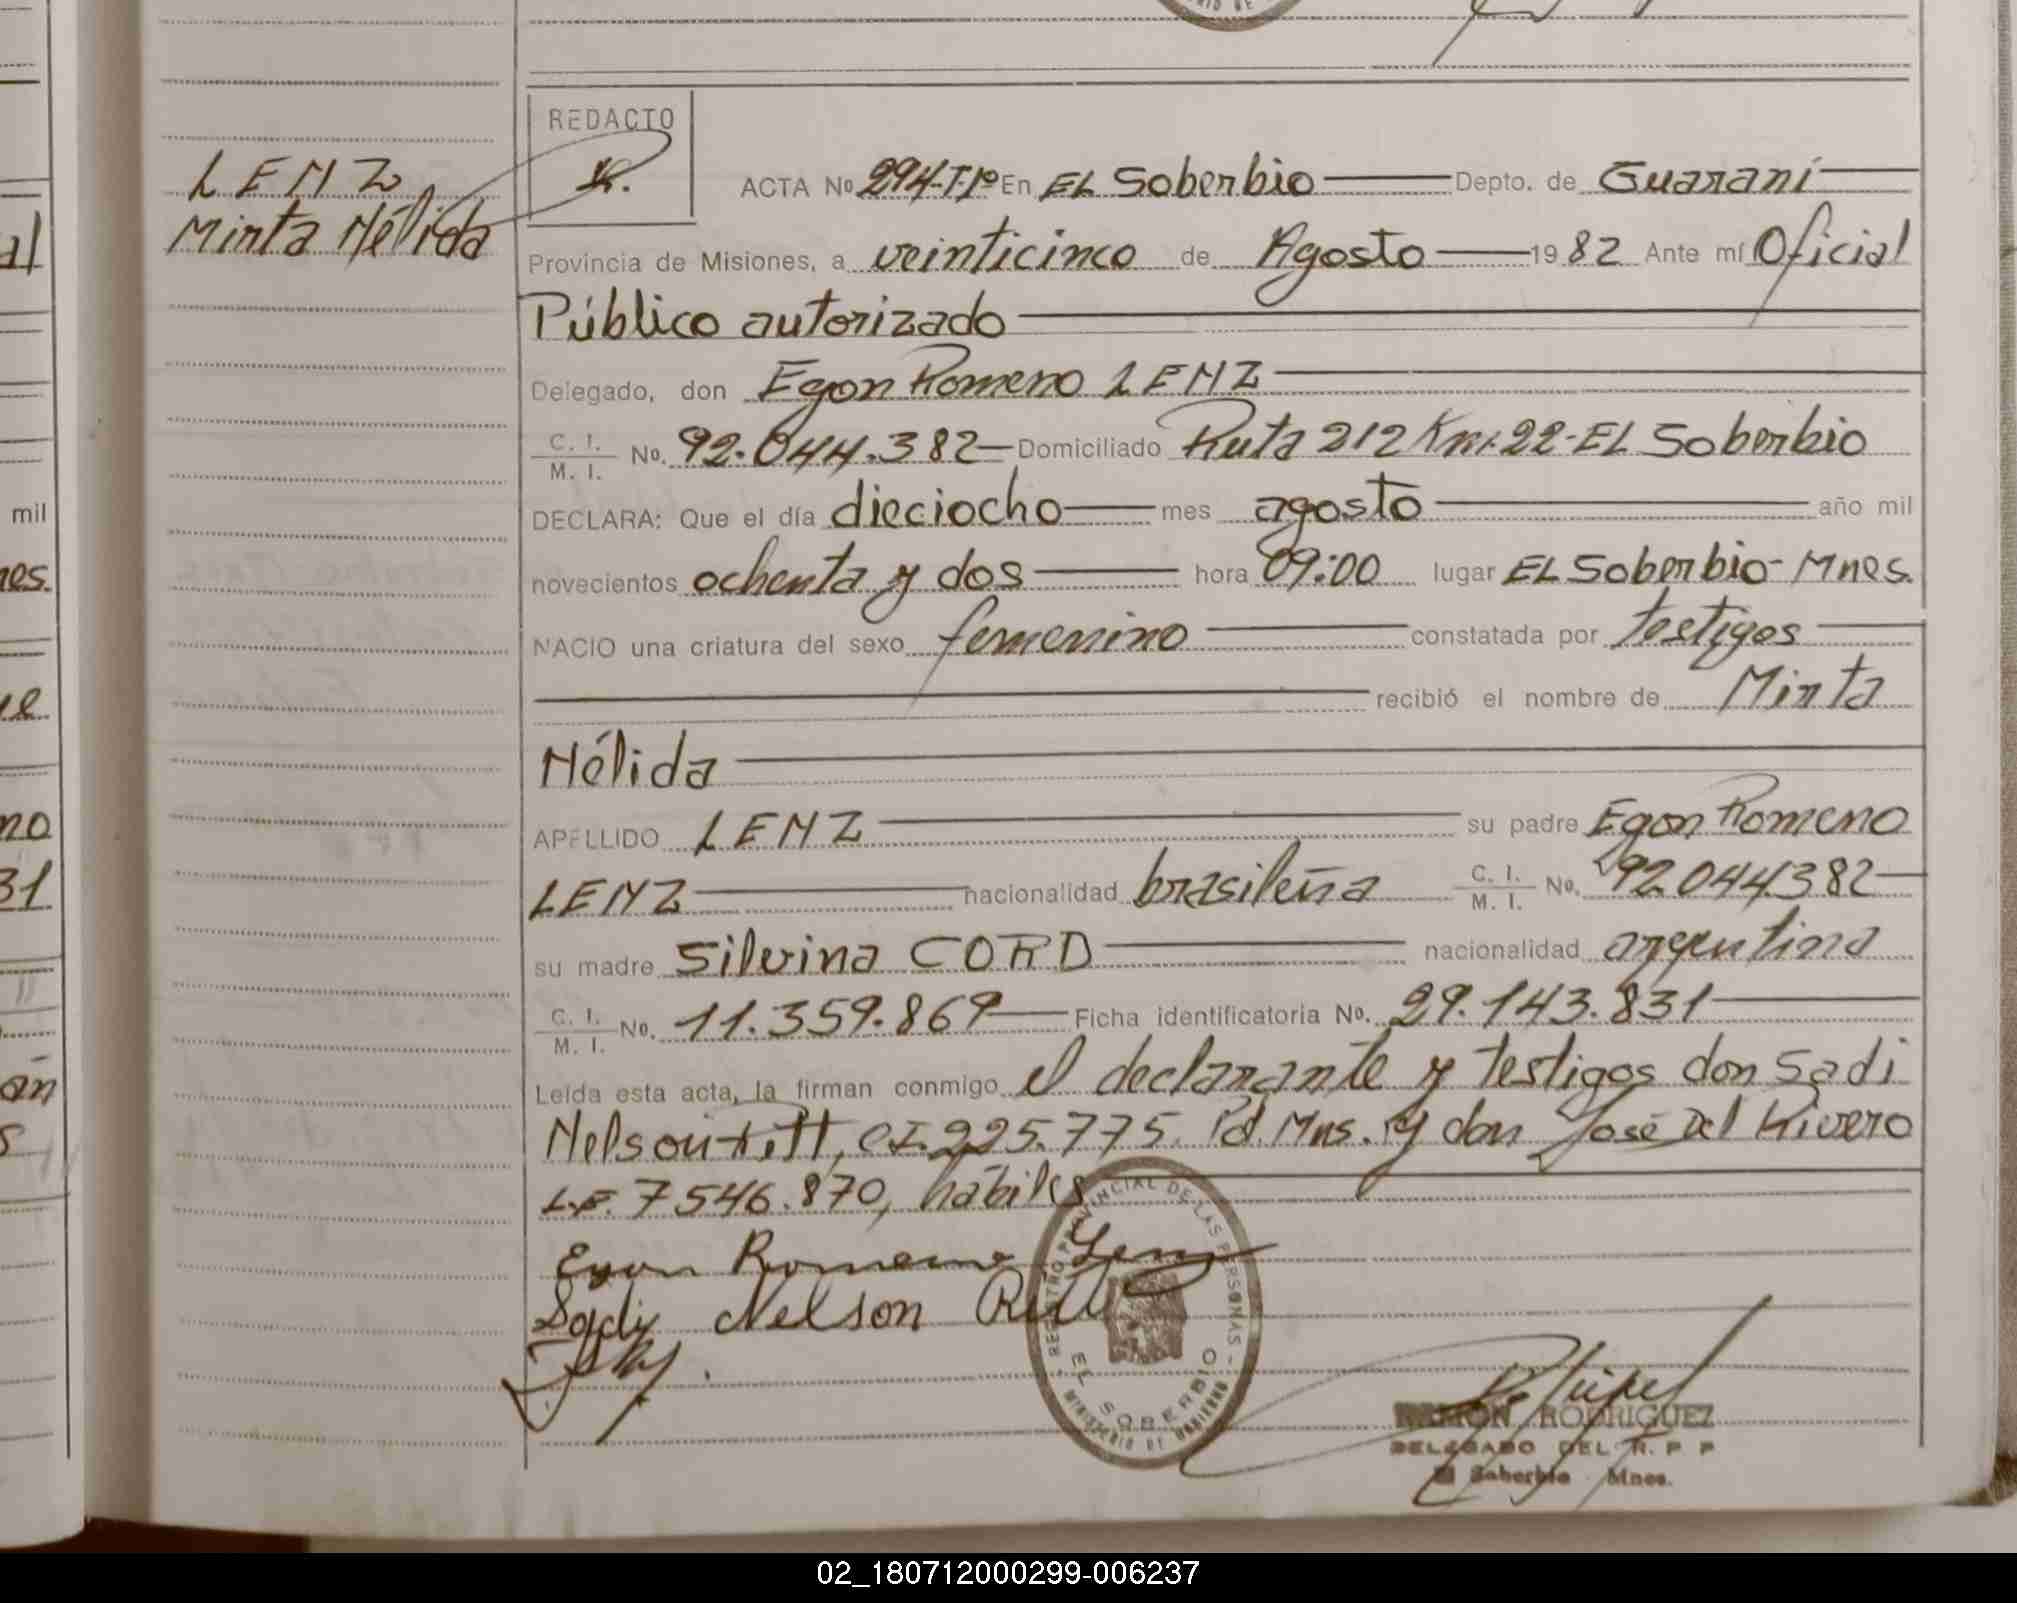 LENZ
Mirta Nélida
REDACTO
ACTA No 294-T.1º En EL Soberbio Depto. de Guaraní
Provincia de Misiones, a veinticinco de Agosto 1982 Ante mí Oficial
Público autorizado
Delegado, don Egon Romeno LENZ
C. I. / M. I. No. 92.044.382 Domiciliado Ruta 212 Km. 22-EL Soberbio
DECLARA: Que el día dieciocho mes agosto año mil
novecientos ochenta y dos hora 09:00 lugar EL Soberbio-Mnes.
NACIO una criatura del sexo femenino constatada por testigos
recibió el nombre de Mirta
Nélida
APELLIDO LENZ su padre Egon Romeno
LENZ nacionalidad brasileña C. I. / M. I. No. 92.044.382
su madre Silvina CORD nacionalidad argentina
C. I. / M. I. No. 11.359.869 Ficha identificatoria No. 29.143.831
Leída esta acta, la firman conmigo el declarante y testigos don Sadi
Nelson, CI. 225.775. Pd. Mns. y don José Del Rivero
L.E. 7546.870, hábiles
Egon Romeno Lenz
Sady Nelson
REGISTRO PROVINCIAL DE LAS PERSONAS
EL SOBERBIO
MINISTERIO DE GOBIERNO
RAMON RODRIGUEZ
DELEGADO DEL R. P P
El Soberbio Mnes.
mil
nes.
no
31
an
02_180712000299-006237